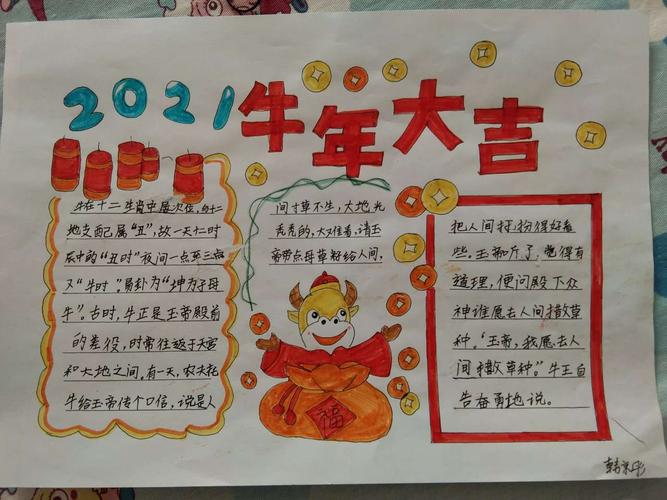 2021牛年大吉
牛在十二生肖中居次位,与十二
地支配属“丑”,故一天十二时
辰中的“丑时”夜间一点至三点
又“牛时”易卦为“坤为子母
牛”。古时,牛正是玉帝殿前
的差役,时常往返于天宫
和大地之间,有一天,农夫托
牛给玉帝传个口信,说是人
间寸草不生,大地光
秃秃的,大又难看,请玉
帝带点母草籽给人间,
把人间打扮得好看
些.玉帝斤了,觉得有
道理,便问殿下众
神谁愿去人间撒草
种.“玉帝,我愿去人
间撒草种。”牛王自
告奋勇地说。
福